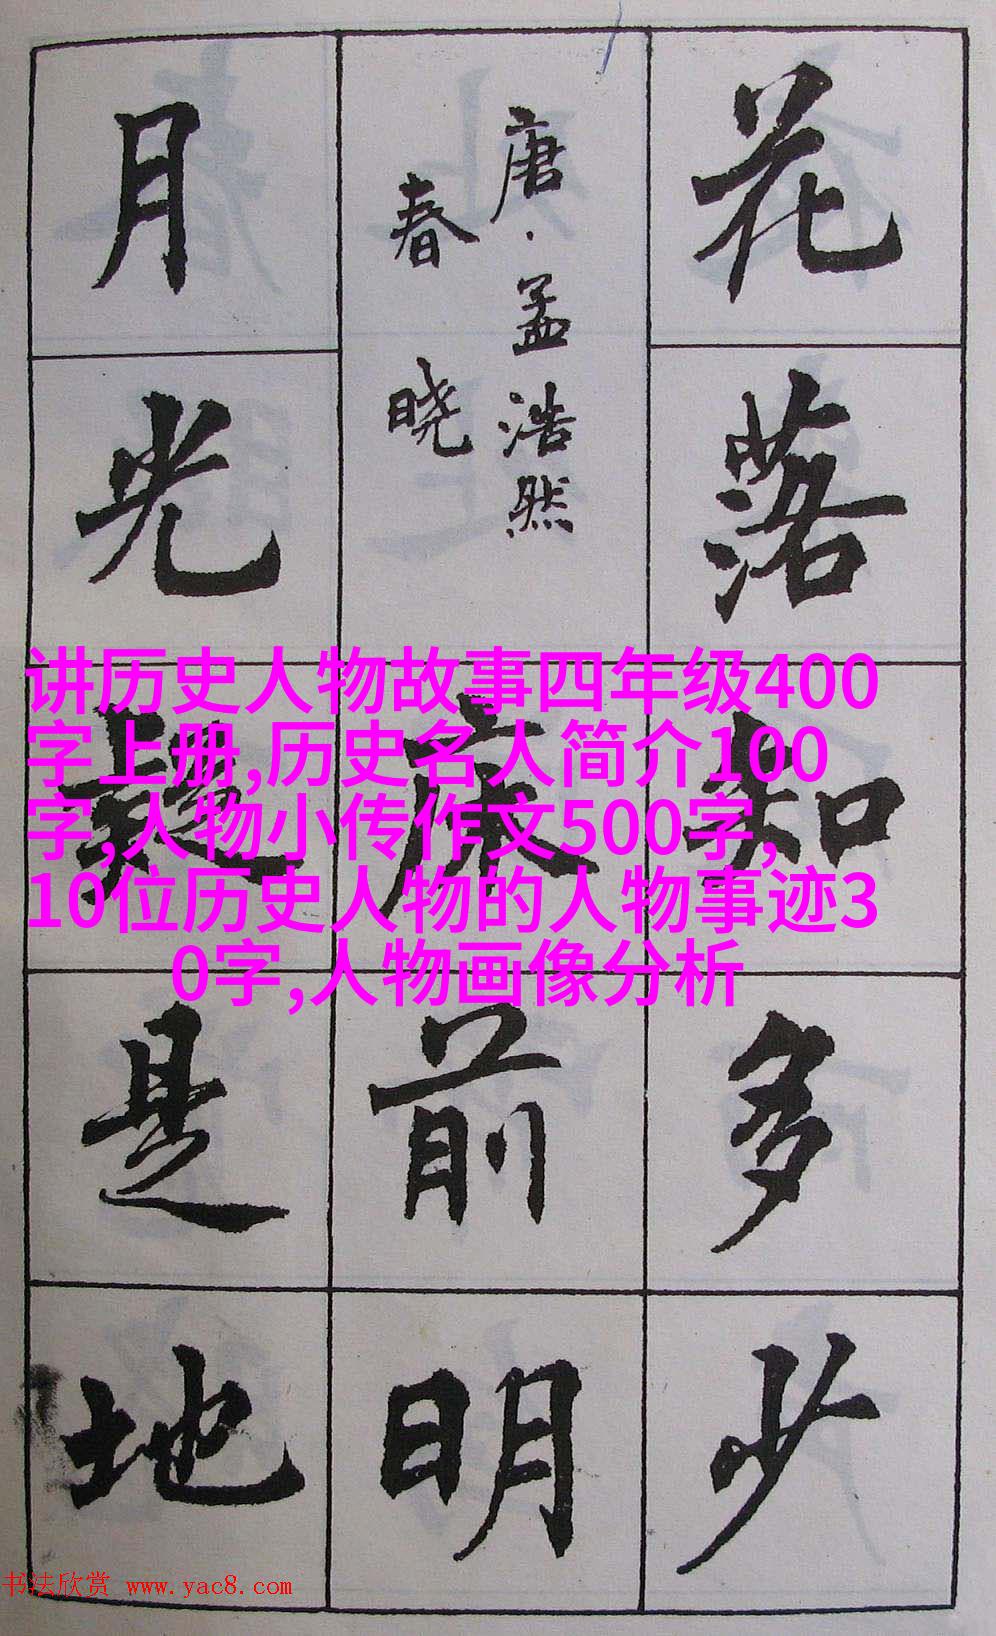 花落知多少
唐·孟浩然
春晓
床前明
月光疑是地
讲历史人物故事四年级400
字上册,历史名人简介100
字,人物小传作文500字,
10位历史人物的人物事迹3
0字,人物画像分析
书法欣赏 www.yac8.com